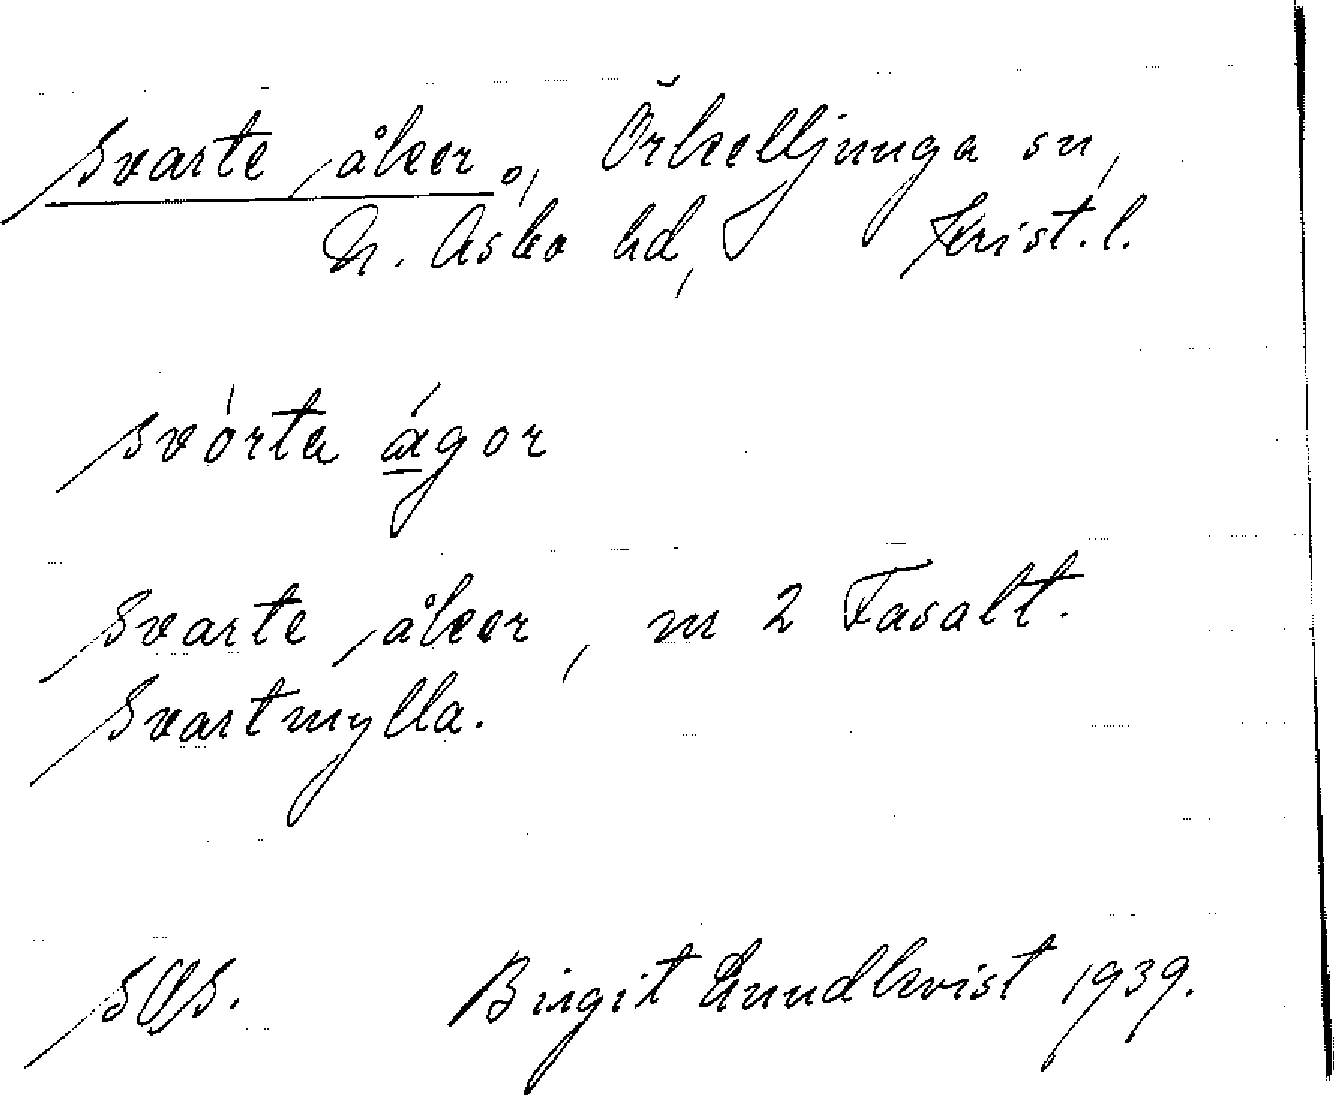 Svarte åker, Örkelljunga sn,
N. Åsbo hd, Krist. l.
svárta ágor
Svarte åker, m 2 Fasalt.
Svartmylla.
SOS. Birgit Lundkvist 1939.